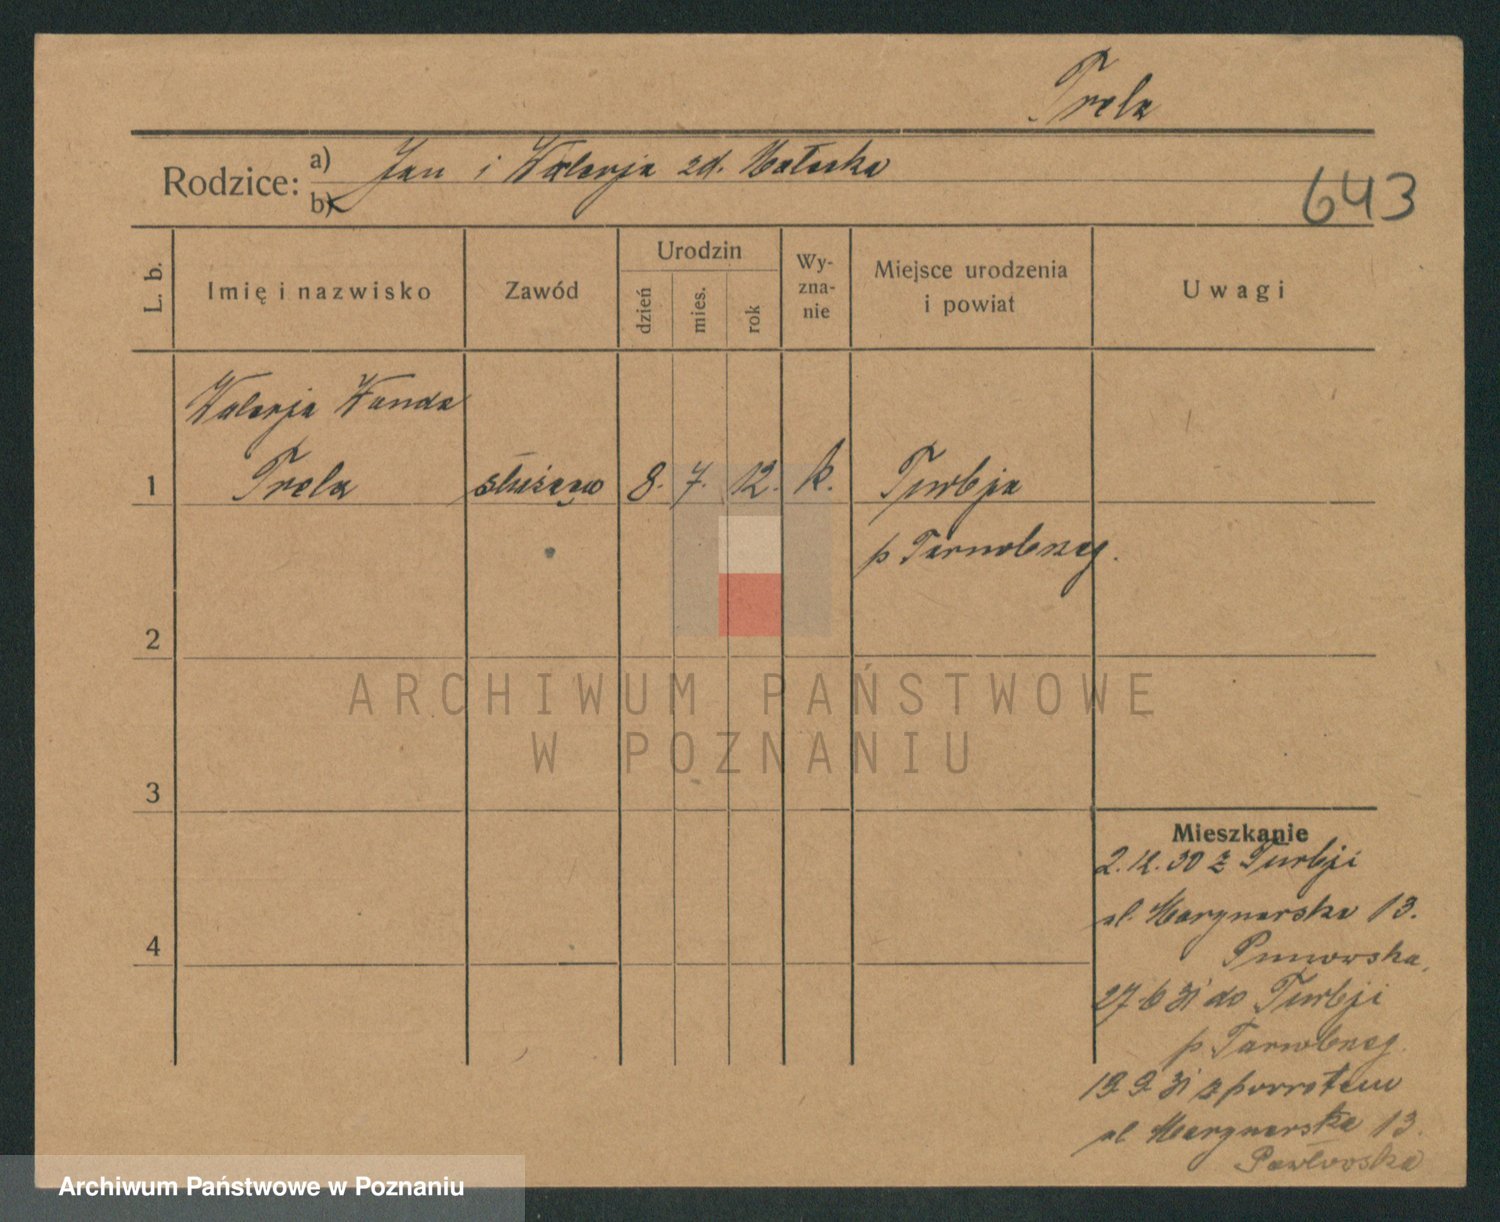 Trela
Rodzice: a) Jan i Walerja zd. Małecka
b)
643
L. b.
Imię i nazwisko
Zawód
Urodzin
dzień
mies.
rok
Wy-
zna-
nie
Miejsce urodzenia
i powiat
Uwagi
Walerja Wanda
1 Trela służąca 8. 7. 12. k. Turbja
p Tarnobrzeg.
2
3
4
ARCHIWUM PAŃSTWOWE
W POZNANIU
Mieszkanie
2.12.30 z Turbji
ul. Marynarska 13.
27.6 31 do Turbji
p Tarnobrzeg.
19 9 31 z powrotem
ul Marynarska 13.
Pawłowska
Archiwum Państwowe w Poznaniu